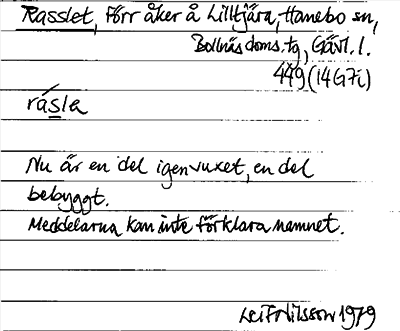 Rasslet, förr åker å Lilltjära, Hanebo sn,
Bollnäs doms.tg, Gävl. l.
449 (14G7i)
rásla
Nu är en del igenvuxet, en del
bebyggt.
Meddelarna kan inte förklara namnet.
Leif Nilsson 1979